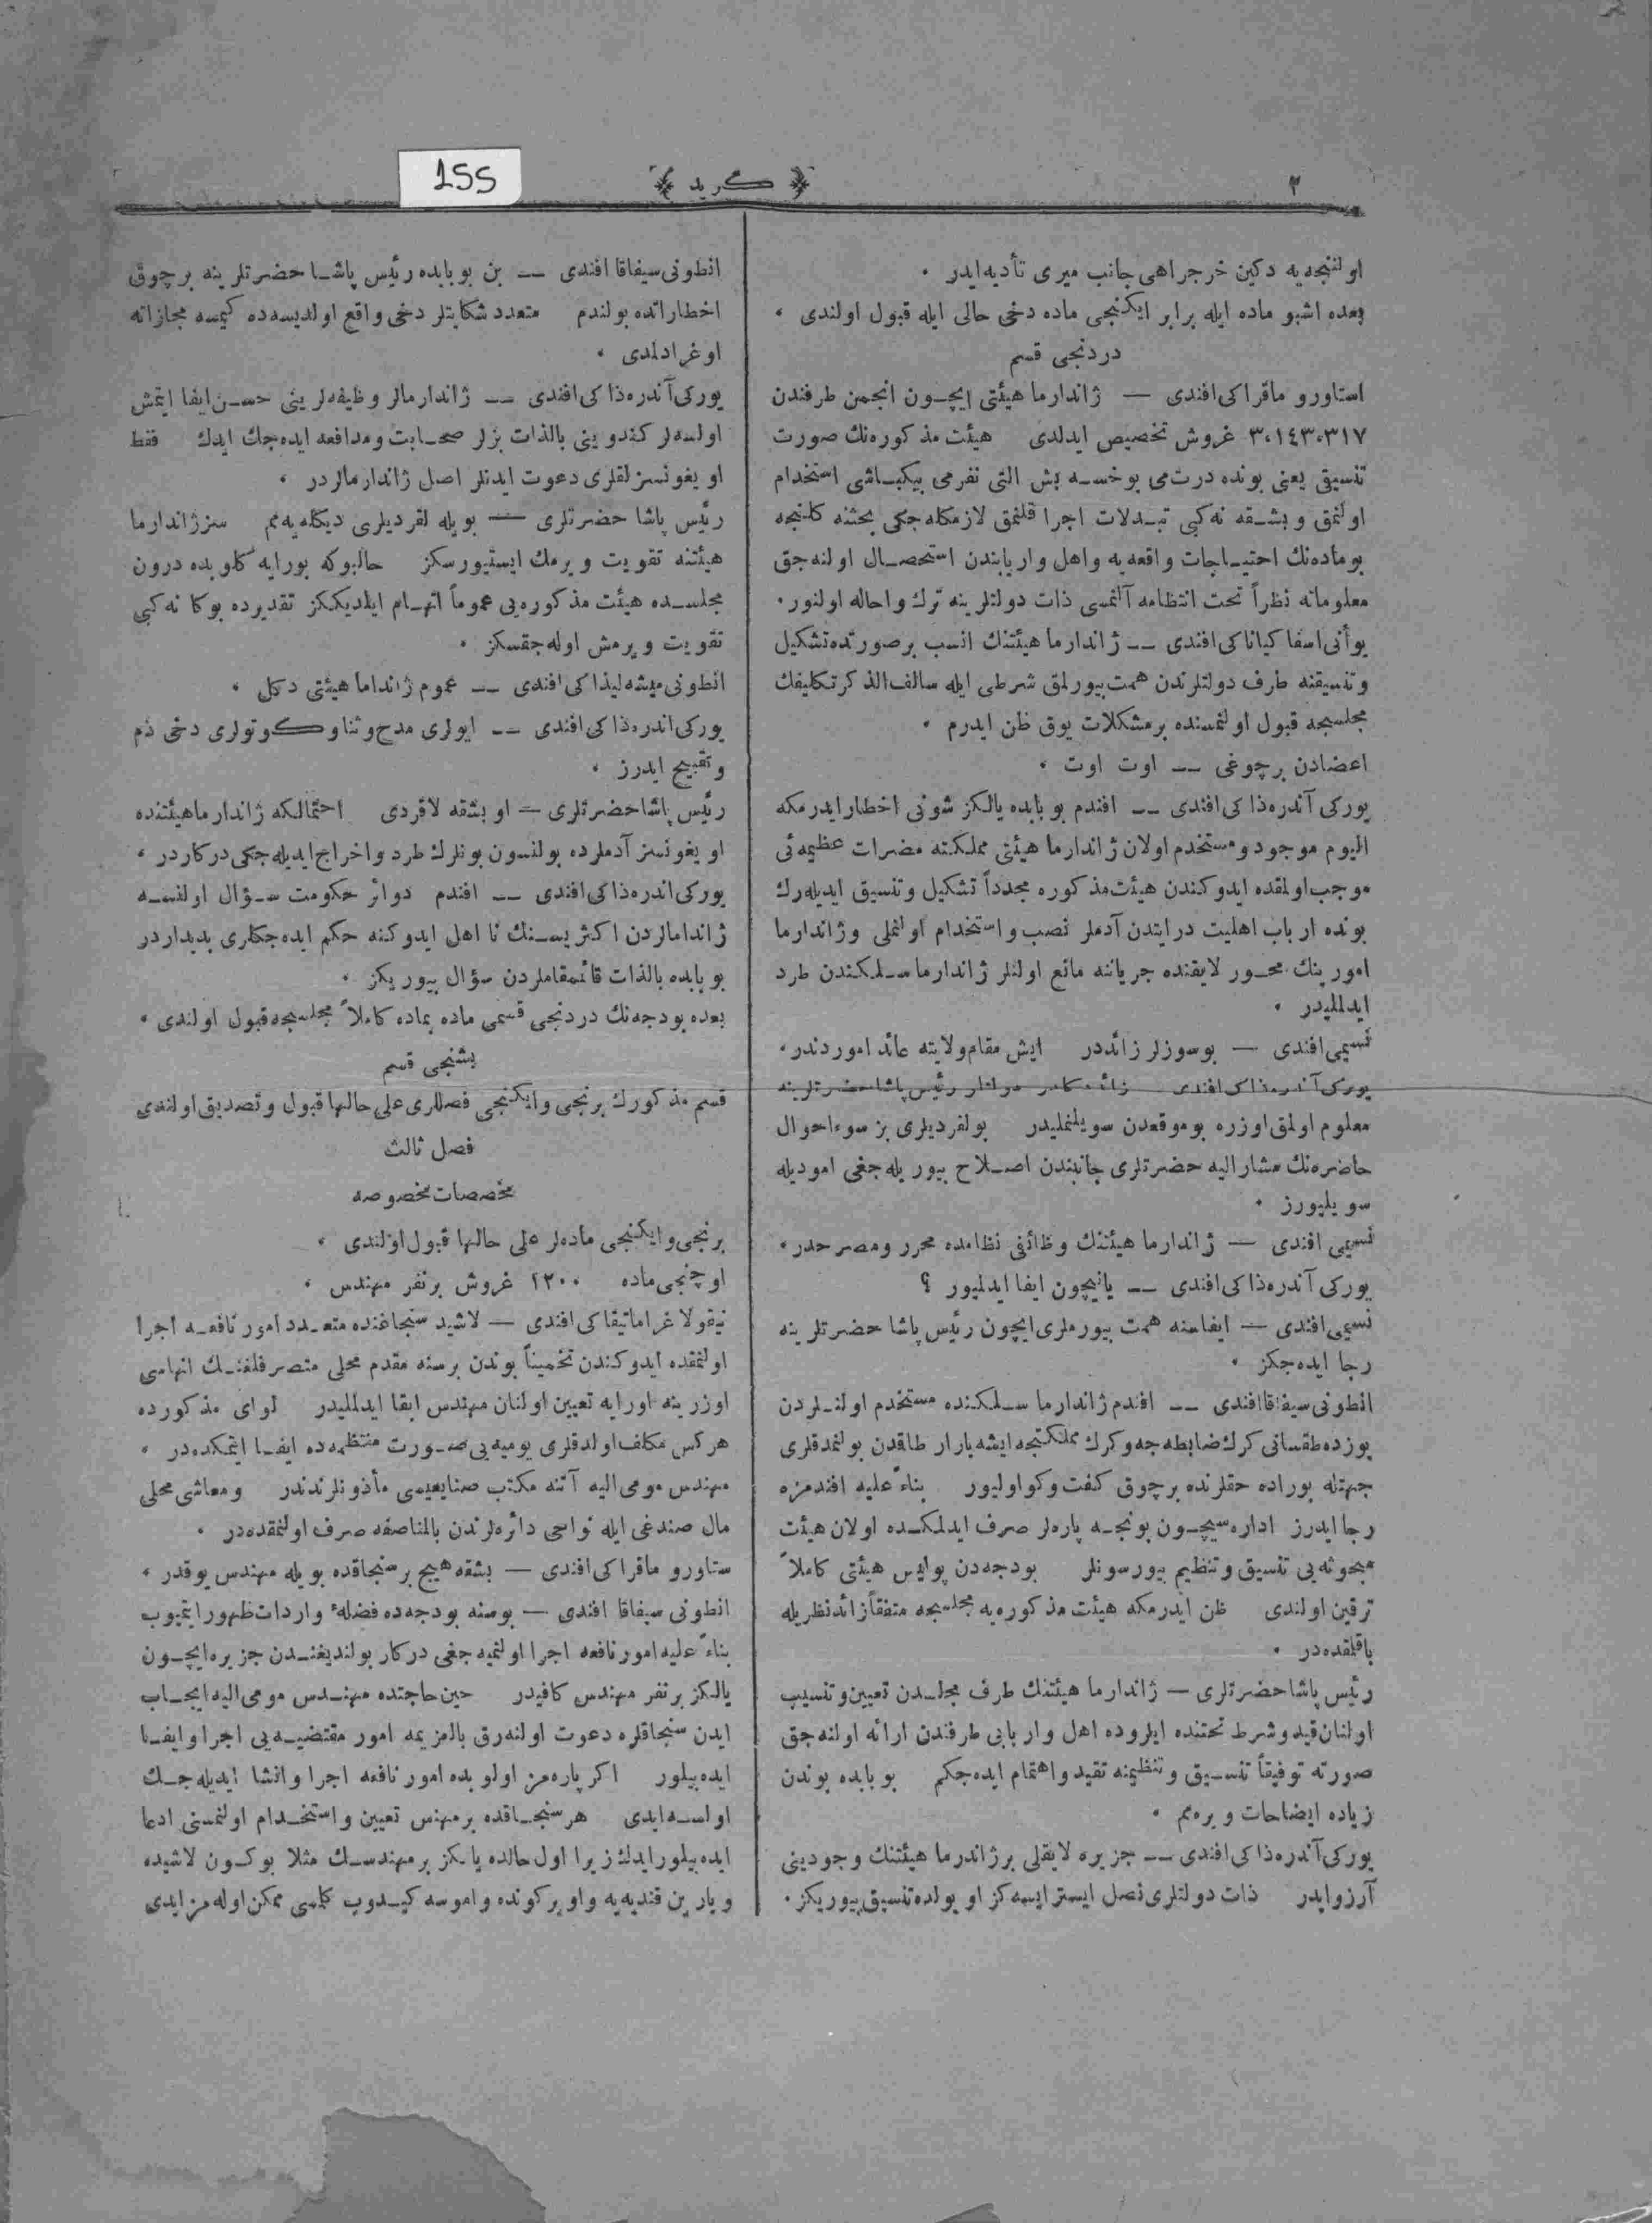 ٢
﴿ كريد ﴾
155
اولنجيه دكين خرجراهی جانب ميری تأديه ايدر .
بعده اشبو ماده ايله برابر ايكنجی ماده دخی حالی ايله قبول اولندی .
دردنجی قسم
استاورو ماقراكی افندی — ژاندارما هيئتی ايچون انجمن طرفندن
٣،١٤٣،٣١٧ غروش تخصيص ايدلدی هيئت مذكوره‌نك صورت
تنسيق يعنی بونده درت‌می يوخسه بش التی نفرمی بيكباشی استخدام
اولنمق و بشقه نه‌كبی تبدلات اجرا قلنمق لازمكله‌جكی بحثنه كلنجه
بوماده‌نك احتياجات واقعه‌يه واهل واربابندن استحصال اولنه‌جق
معلوماته نظراً تحت انتظامه آلنمسی ذات دولتلرينه ترك واحاله اولنور.
يوآنی اسفاكياناكی افندی — ژاندارما هيئتنك انسب برصورتده تشكيل
وتنسيقنه طرف دولتلرندن همت بيورلمق شرطی ايله سالف‌الذكر تكليفك
مجلسجه قبول اولنمسنده برمشكلات يوق ظن ايدرم .
اعضادن برچوغی — اوت اوت .
يوركی آندره‌ذاكی افندی — افندم بو بابده يالكز شونی اخطار ايدرمكه
اليوم موجود ومستخدم اولان ژاندارما هيئتی مملكته مضرات عظيمه‌ئی
موجب اولمقده ايدوكندن هيئت مذكوره مجدداً تشكيل وتنسيق ايديله‌رك
بونده ارباب اهليت درايتدن آدملر نصب واستخدام اولنملی وژاندارما
امورينك محور لايقنده جرياننه مانع اولنلر ژاندارما سلكندن طرد
ايدلليدر .
نسيمی افندی — بوسوزلر زائددر ايش مقام ولايته عائد اموردندر .
يوركی آندره‌ذاكی افندی — زائد رئيس پاشا حضرتلرينه
معلوم اولمق اوزره بوموقعدن سويلنمليدر بولقرديلری بز سوءاحوال
حاضره‌نك مشاراليه حضرتلری جانبندن اصلاح بيوريله‌جغی اموديله
سويليورز .
نسيمی افندی — ژاندارما هيئتنك وظائفی نظامده محرر ومصرحدر .
يوركی آندره‌ذاكی افندی — يانيچون ايفا ايدلميور ؟
نسيمی افندی — ايفاسنه همت بيورملری ايچون رئيس پاشا حضرتلرينه
رجا ايده‌جكز .
انطونی سيفاقا افندی — افندم ژاندارما سلكنده مستخدم اولنلردن
يوزده طقسانی كرك ضابطه‌جه وكرك مملكتجه ايشه يارار طاقدن بولنمدقلری
جهتله بوراده حقلرنده برچوق كفت وكو اوليور بناءً عليه افندمزه
رجا ايدرز اداره‌سيچون بونجه پاره‌لر صرف ايدلمكده اولان هيئت
مبحوثه‌یی تنسيق وتنظيم بيورسونلر بودجه‌دن پوليس هيئتی كاملاً
ترقين اولندی ظن ايدرمكه هيئت مذكوره‌يه مجلسجه متفقاً زائد نظريله
باقلقده‌در .
رئيس پاشا حضرتلری — ژاندارما هيئتنك طرف مجلسدن تعيين وتنسيب
اولنان قيد وشرط تحتنده ايلروده اهل واربابی طرفندن ارائه اولنه‌جق
صورته توفيقاً تنسيق وتنظيمنه تقيد واهتمام ايده‌جكم بو بابده بوندن
زياده ايضاحات ويره‌مم .
يوركی آندره‌ذاكی افندی — جزيره لايقلی برژاندرما هيئتنك وجودينی
آرزو ايدر ذات دولتلری نصل ايستر ايسه‌كز او يولده تنسيق بيوريكز .
انطونی سيفاقا افندی — بن بو بابده رئيس پاشا حضرتلرينه برچوق
اخطاراتده بولندم متعدد شكايتلر دخی واقع اولديسه‌ده كيمسه مجازاته
اوغرادلمدی .
يوركی آندره‌ذاكی افندی — ژاندارمالر وظيفه‌لرينی حسن ايفا ايتمش
اولسه‌لر كندوينی بالذات بزلر صحابت ومدافعه ايده‌جك ايدك فقط
اويغونسزلقلری دعوت ايدنلر اصل ژاندارمالردر .
رئيس پاشا حضرتلری — بويله لقرديلری ديكله‌يه‌مم سز ژاندارما
هيئتنه تقويت ويرمك ايستيورسكز حالبوكه بورايه كلوبده درون
مجلسده هيئت مذكوره‌یی عموماً اتهام ايلديككز تقديرده بوكا نه‌كبی
تقويت ويرمش اوله‌جقسكز .
انطونی ميشه‌ليذاكی افندی — عموم ژانداما هيئتی دكل .
يوركی اندره‌ذاكی افندی — ايولری مدح وثنا وكوتولری دخی ذم
وتقبيح ايدرز .
رئيس پاشا حضرتلری — او بشقه لاقردی احتمالكه ژاندارما هيئتنده
اويغونسز آدملرده بولنسون بونلرك طرد واخراج ايديله‌جكی دركاردر .
يوركی اندره‌ذاكی افندی — افندم دوائر حكومت سؤال اولنسه
ژاندامالردن اكثريسنك نا اهل ايدوكنه حكم ايده‌جكلری بديداردر
بو بابده بالذات قائممقاملردن سؤال بيوريكز .
بعده بودجه‌نك دردنجی قسمی ماده بماده كاملاً مجلسجه قبول اولندی .
بشنجی قسم
قسم مذكورك برنجی وايكنجی فصللری علی حالها قبول وتصديق اولندی
فصل ثالث
مخصصات مخصوصه
برنجی وايكنجی ماده‌لر علی حالها قبول اولندی .
اوچنجی ماده ١٢٠٠ غروش برنفر مهندس .
نيقولا غراماتيقاكی افندی — لاشيد سنجاغنده متعدد امور نافعه اجرا
اولنمقده ايدوكندن تخميناً بوندن برسنه مقدم محلی متصرفلغنك انهاسی
اوزرينه اورايه تعيين اولنان مهندس ابقا ايدلليدر لوای مذكورده
هركس مكلف اولدقلری يوميه‌یی صورت منتظمه‌ده ايفا ايتمكده‌در .
مهندس مومی‌اليه آتنه مكتب صنايعيسی مأذونلرندندر ومعاشی محلی
مال صندغی ايله نواحی دائره‌لرندن بالمناصفه صرف اولنمقده‌در .
ستاورو ماقراكی افندی — بشقه هيچ برسنجاقده بويله مهندس يوقدر .
انطونی سيفاقا افندی — بوسنه بودجه‌ده فضلهٔ واردات ظهور ايتميوب
بناءً عليه امور نافعه اجرا اولنميه‌جغی دركار بولنديغندن جزيره ايچون
يالكز برنفر مهندس كافيدر حين حاجتده مهندس مومی‌اليه ايجاب
ايدن سنجاقلره دعوت اولنه‌رق بالمزيمه امور مقتضيه‌یی اجرا وايفا
ايده‌بيلور اكر پاره‌مز اولوبده امور نافعه اجرا وانشا ايديله‌جك
اولسه‌ايدی هرسنجاقده برمهنس تعيين واستخدام اولنمسنی ادعا
ايده‌بيلورايدك زيرا اول حالده يالكز برمهندسك مثلا بوكون لاشيده
ويارين قنديه‌يه واوبركونده واموسه كيدوب كلمسی ممكن اوله‌مز ايدی